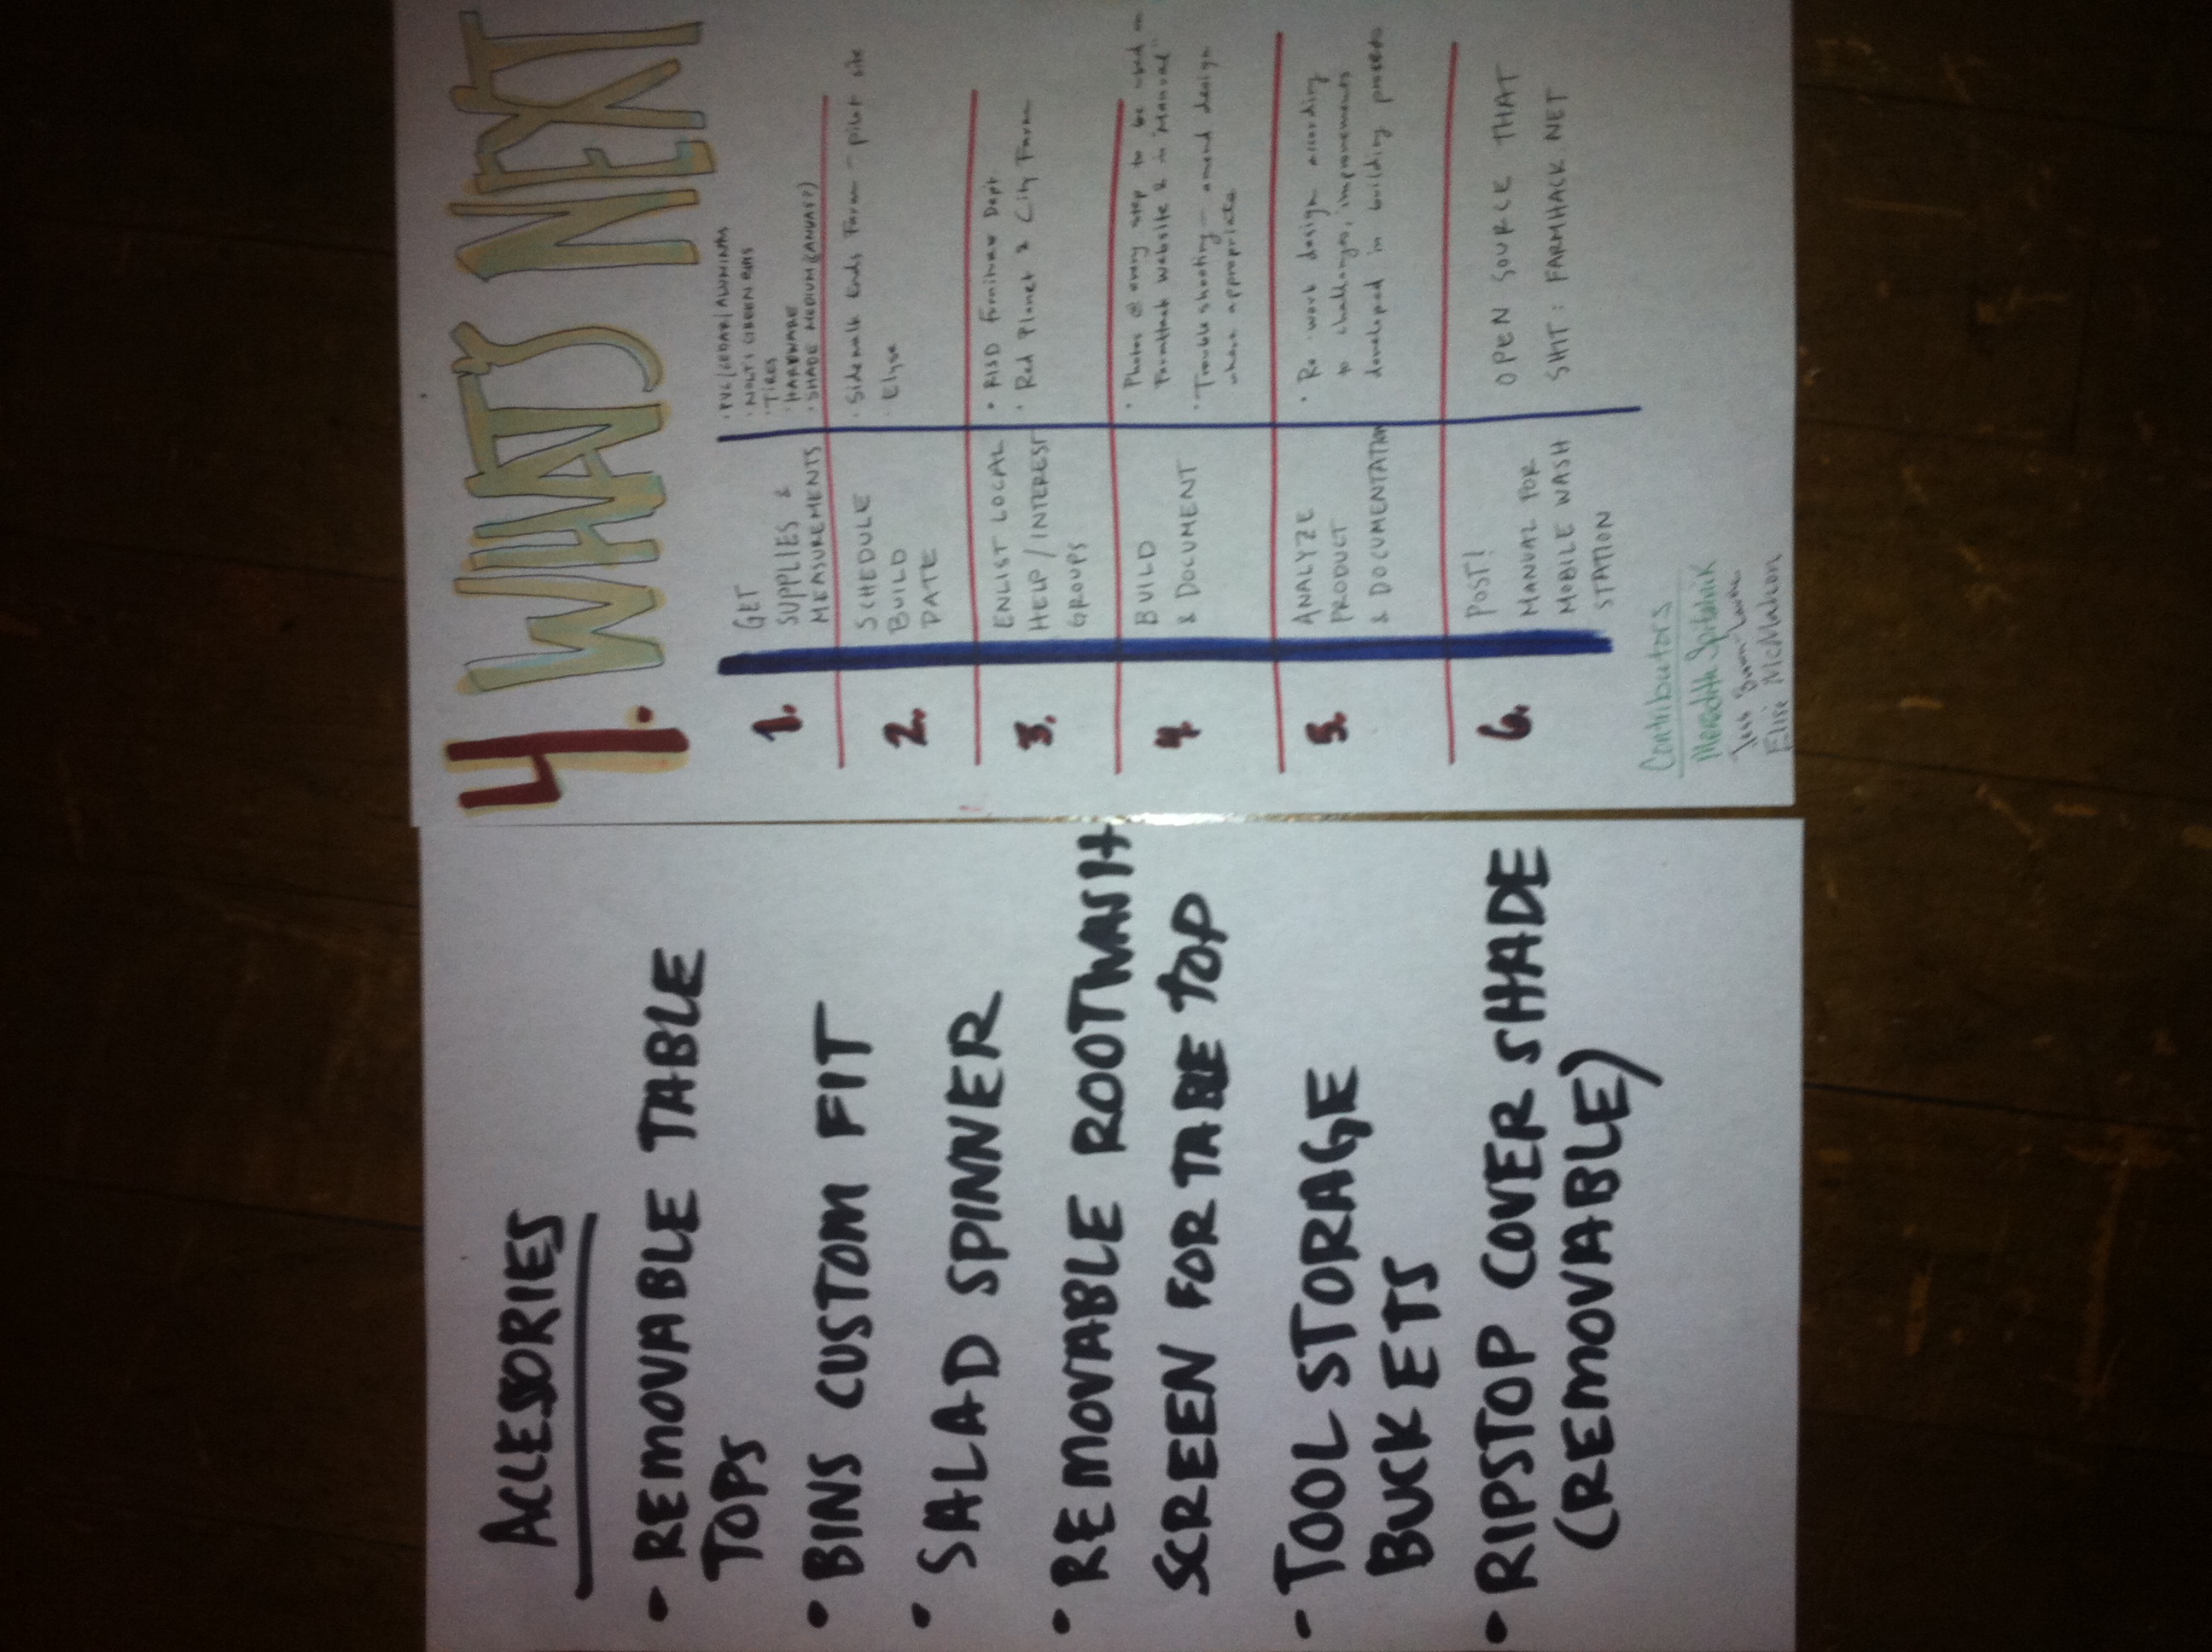 ACCESSORIES
• REMOVABLE TABLE
TOPS
• BINS CUSTOM FIT
• SALAD SPINNER
• REMOVABLE ROOTWASH
SCREEN FOR TABLE TOP
- TOOL STORAGE
BUCKETS
• RIPSTOP COVER SHADE
(REMOVABLE)
4. WHAT'S NEXT
1.
GET
SUPPLIES &
MEASUREMENTS
• PVC/CEDAR/ALUMINUM
• TIRES
• HARDWARE
• SHADE MEDIUM (CANVAS?)
2.
SCHEDULE
BUILD
DATE
• Sidewalk Ends Farm - pilot site
• Elyse
3.
ENLIST LOCAL
HELP/INTEREST
GROUPS
• RISD Furniture Dept
• Red Planet & City Farm
4.
BUILD
& DOCUMENT
• Photos @ every step to be used on
FarmHack website & in "Manual"
• Trouble shooting - amend design
where appropriate
5.
ANALYZE
PRODUCT
& DOCUMENTATION
• Re-work design according
to challenges, improvements
developed in building process
6.
POST!
MANUAL FOR
MOBILE WASH
STATION
OPEN SOURCE THAT
SHIT: FARMHACK.NET
Contributors
Meredith
Jess Brown-
Elise McMahon